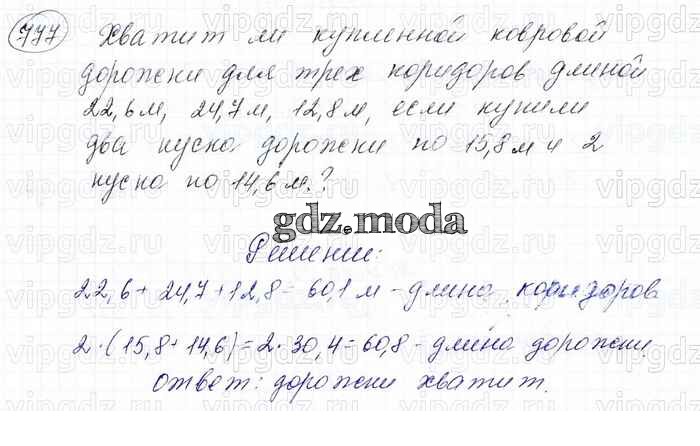 777 Хватит ли купленной ковровой
дорожки для трех коридоров длиной
22,6м, 24,7м, 12,8м, если купили
два куска дорожки по 15,8м и 2
куска по 14,6м.?
gdz.moda
Решение:
22,6+24,7+12,8=60,1м-длина коридоров
2·(15,8+14,6)=2·30,4=60,8-длина дорожки
ответ: дорожки хватит.